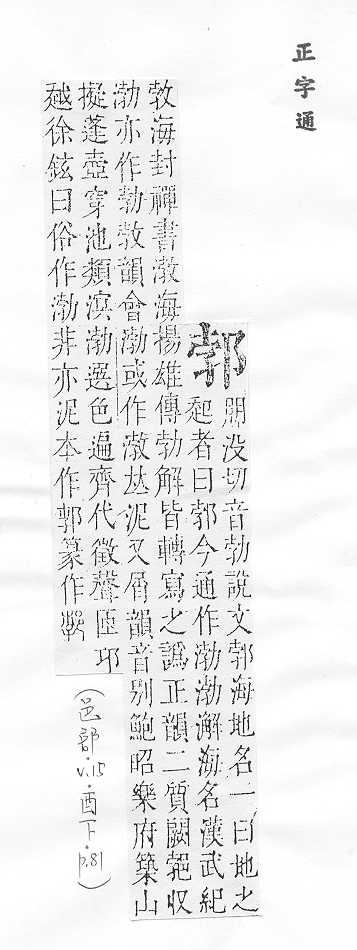 正字通
郣
開没切音勃說文郣海地名一曰地之
起者曰郣今通作渤渤澥海名漢武紀
㪍海封禪書海揚雄傳勃解皆轉寫之譌正韻二質闕郣収
渤亦作勃㪍韻會渤或作𠀤泥又屑韻音別鮑昭樂府築山
擬蓬壺穿池類溟渤選色遍齊代徵聲匝邛
越徐鉉曰俗作渤非亦泥本作郭篆作
(邑部·v.15·酉下·p.81)